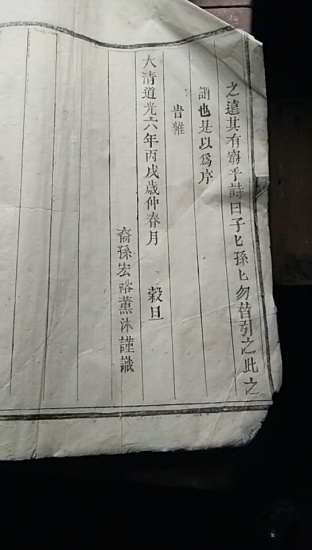 之遠其有窮乎詩曰子匕孫匕勿替引之此之
謂也是以為序
旹維
大清道光六年丙戌歲仲春月　榖旦
裔孫宏裕薰沐謹識